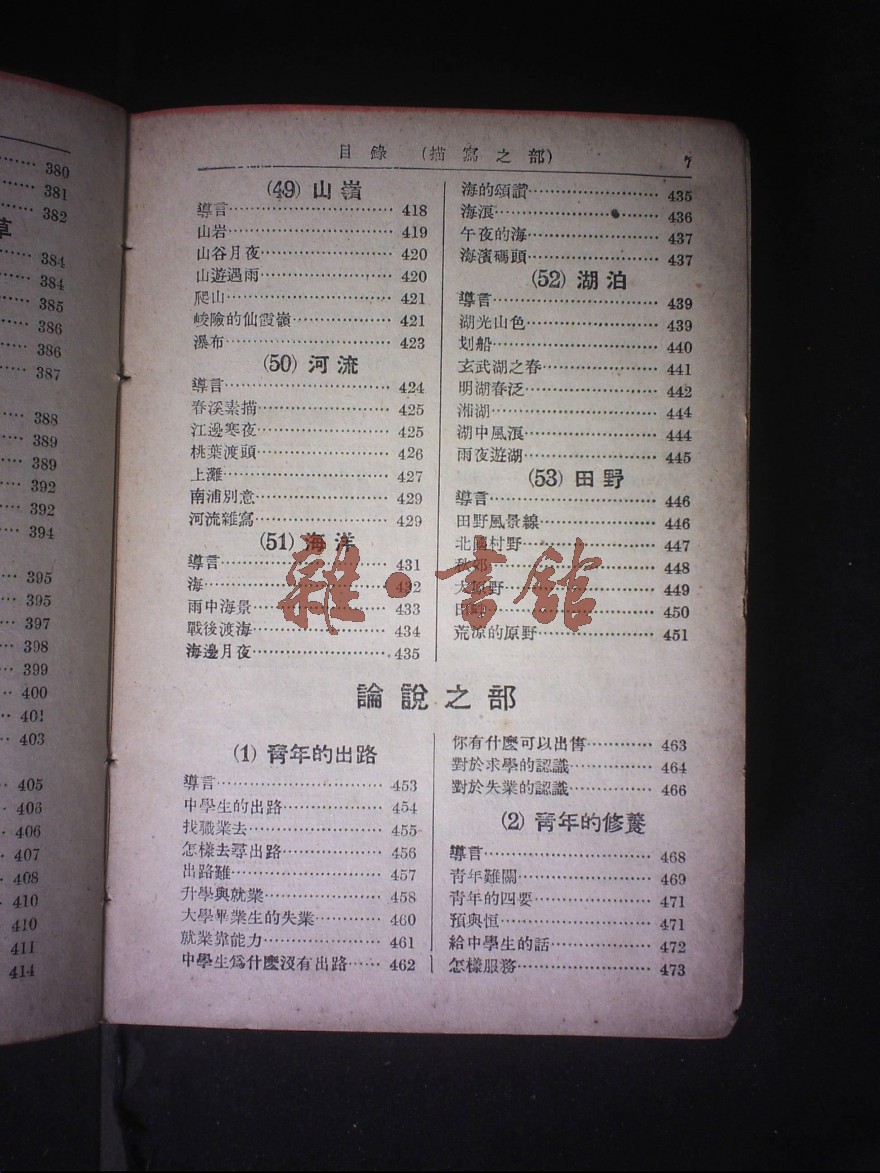 380
381
382
草
384
384
385
386
386
387
388
389
389
392
392
394
395
395
397
398
399
400
401
403
405
406
406
407
408
410
410
411
414
目錄 (描寫之部) 7
(49) 山嶺
導言 418
山岩 419
山谷月夜 420
山遊遇雨 420
爬山 421
峻險的仙霞嶺 421
瀑布 423
(50) 河流
導言 424
春溪素描 425
江邊寒夜 425
桃葉渡頭 426
上灘 427
南浦別意 429
河流雜寫 429
(51) 海洋
導言 431
海 432
雨中海景 433
戰後渡海 434
海邊月夜 435
海的頌讚 435
海浪 436
午夜的海 437
海濱碼頭 437
(52) 湖泊
導言 439
湖光山色 439
划船 440
玄武湖之春 441
明湖春泛 442
湘湖 444
湖中風浪 444
雨夜遊湖 445
(53) 田野
導言 446
田野風景線 446
北國村野 447
秋郊 448
大原野 449
450
荒涼的原野 451
雜·書館
論說之部
(1) 青年的出路
導言 453
中學生的出路 454
找職業去 455
怎樣去尋出路 456
出路難 457
升學與就業 458
大學畢業生的失業 460
就業靠能力 461
中學生爲什麼沒有出路 462
你有什麼可以出售 463
對於求學的認識 464
對於失業的認識 466
(2) 青年的修養
導言 468
青年難關 469
青年的四要 471
預與恒 471
給中學生的話 472
怎樣服務 473